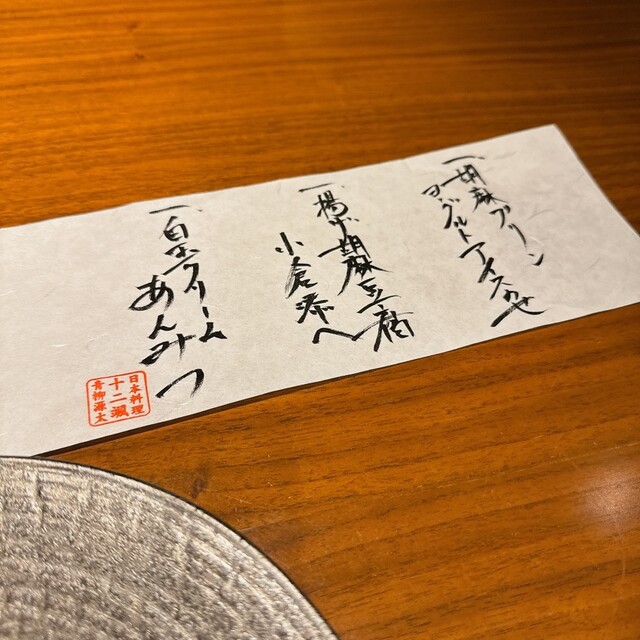 一、胡麻プリン
ヨーグルトアイスのせ
一、揚げ胡麻豆腐
小倉添へ
一、白玉クリーム
あんみつ
日本料理
十二颯
青柳源太